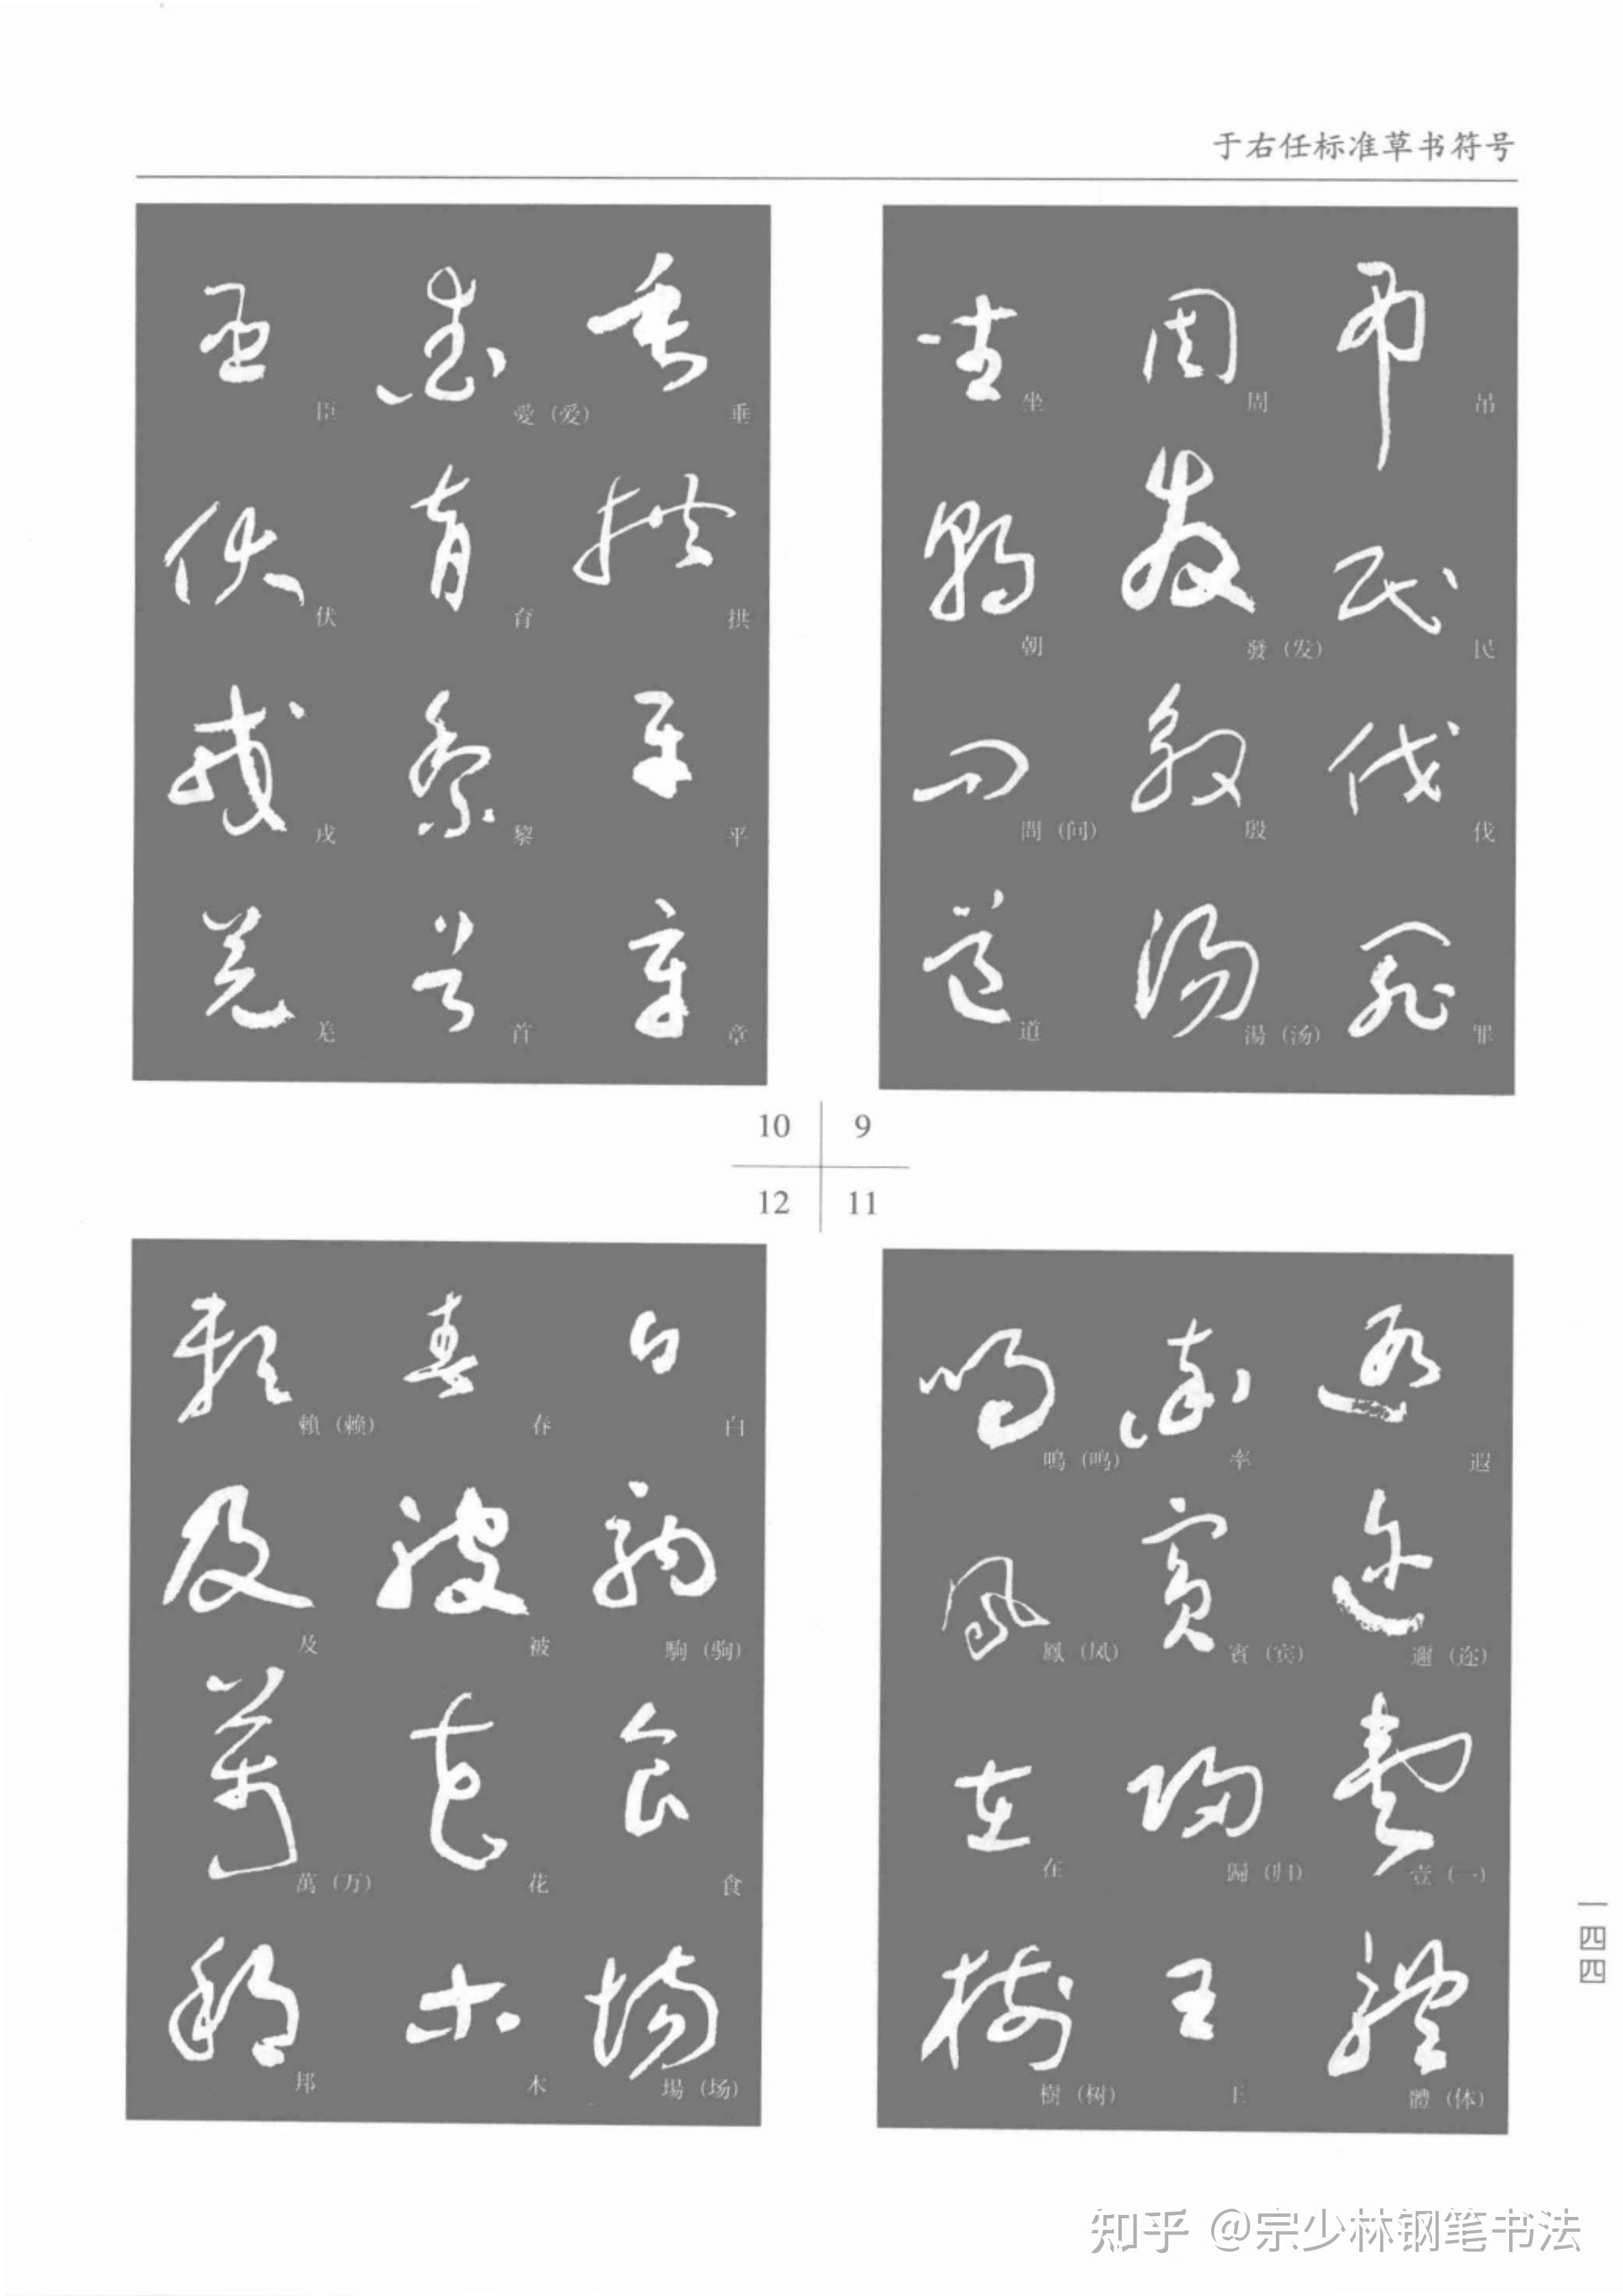 于右任标准草书符号
吊 民 伐 罪
周 發（发） 殷 湯（汤）
坐 朝 問（问） 道
垂 拱 平 章
愛（爱） 育 黎 首
臣 伏 戎 羌
10 9
12 11
遐 邇（迩） 壹（一） 體（体）
率 賓（宾） 歸（归） 王
鳴（鸣） 鳳（凤） 在 樹（树）
白 駒（驹） 食 場（场）
春 被 花 木
賴（赖） 及 萬（万） 邦
一四四
知乎 @宗少林钢笔书法